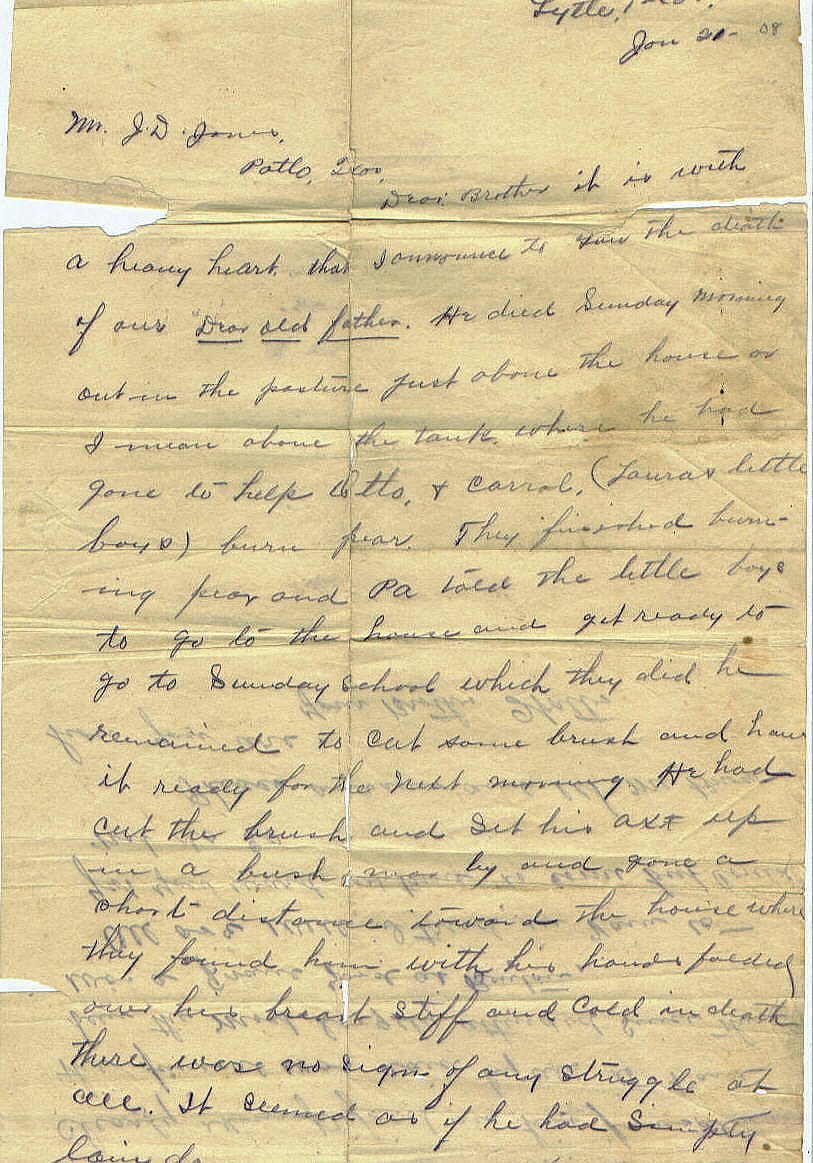 Lytle, Tex.
Jan 21- 08
Mr. J. D. Jones,
Patlo, Texas,
Dear Brother it is with
a heavy heart that I announce to you the death
of our Dear old father. He died Sunday morning
out in the pasture just above the house or
I mean above the tank. where he had
gone to help Otto, & Carrol, (Lauras little
boys) burn pear. They finished burn-
ing pear and Pa told the little boys
to go to the house and get ready to
go to Sunday school which they did he
remained to cut some brush and have
it ready for the next morning He had
cut the brush and set his axe up
in a bush near by and gone a
short distance toward the house where
they found him with his hands folded
over his breast stiff and cold in death
there was no sign of any struggle at
all. It seemed as if he had simply